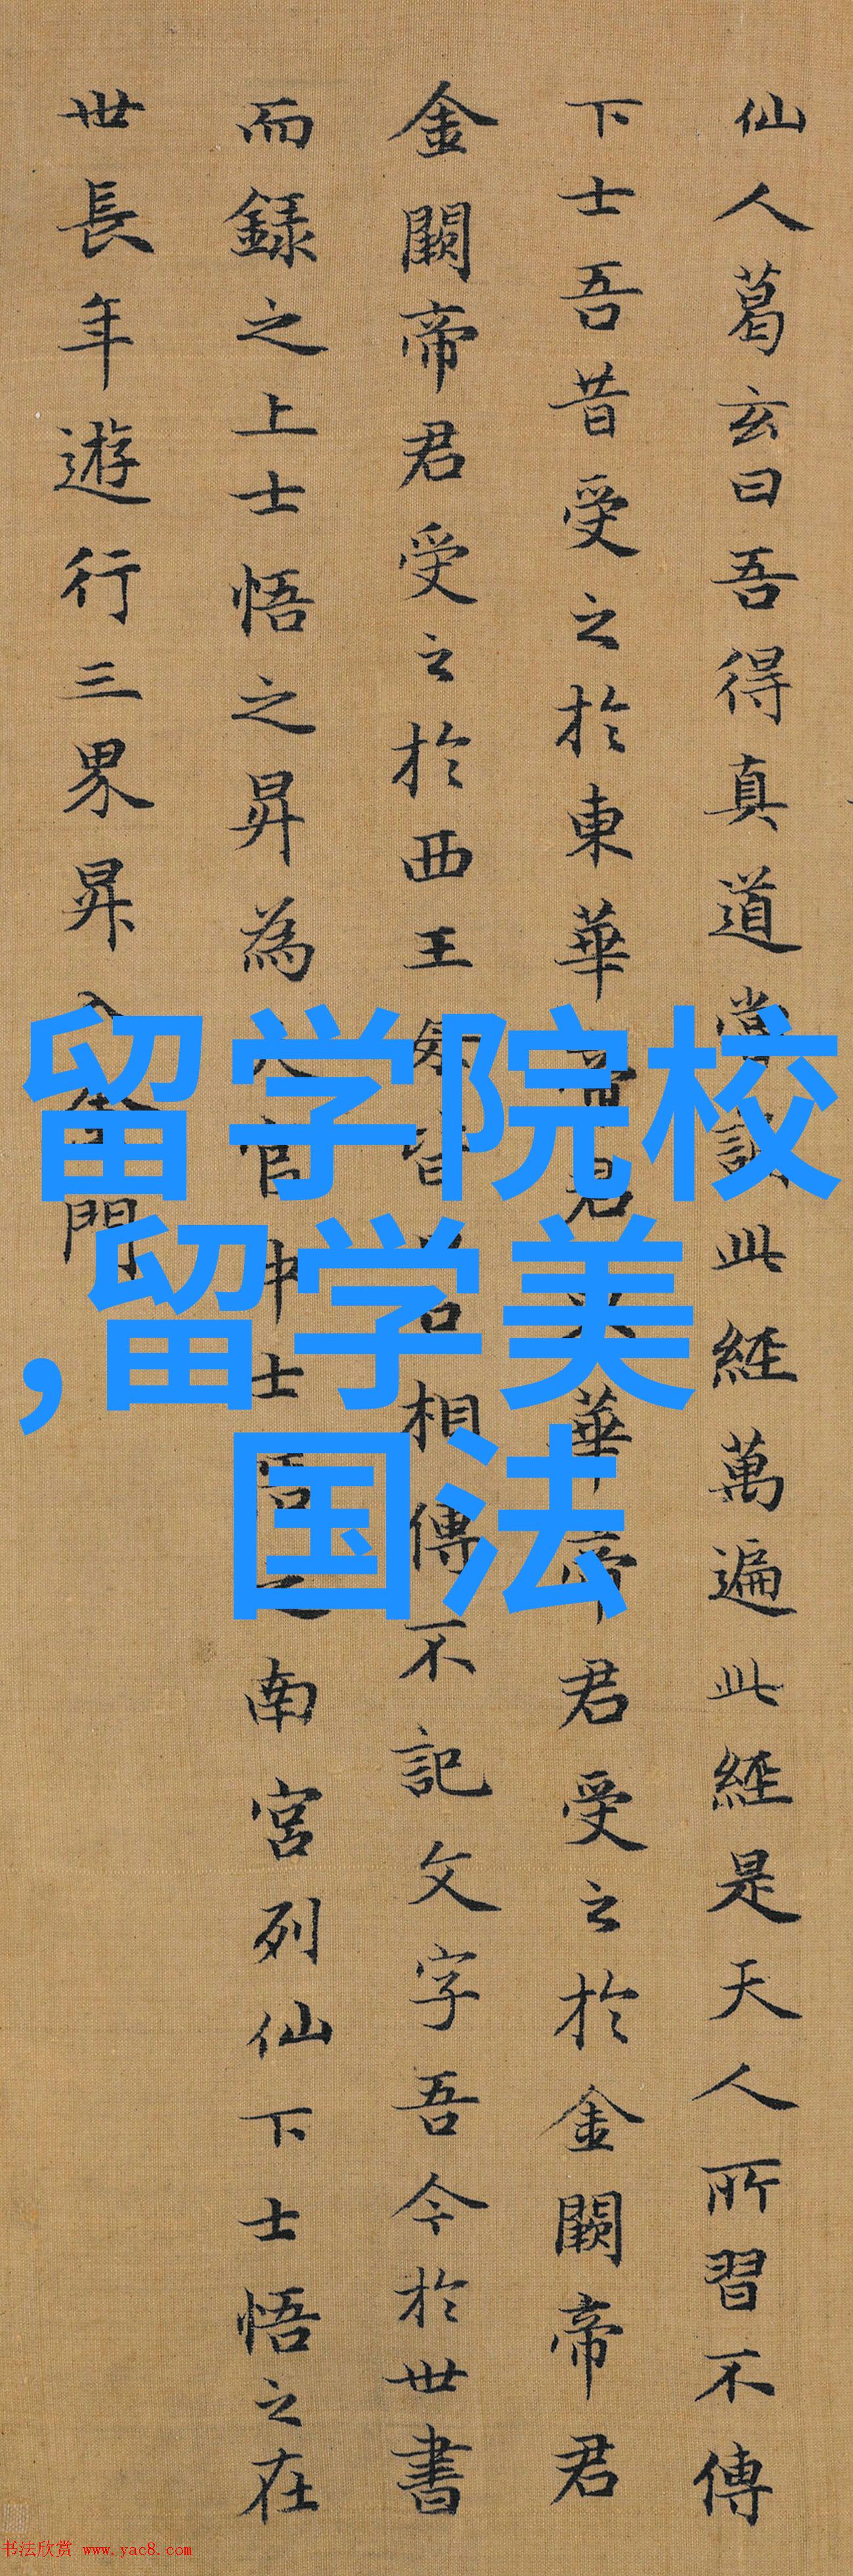 仙人葛玄曰吾得真道當誦此經萬遍此經是天人所習不傳
下士吾昔受之於東華君華帝君受之於金闕帝君
金闕帝君受之於西王母皆相傳不記文字吾今於世書
而録之上士悟之昇為天官中士悟之南宮列仙下士悟之在
世長年遊行三界昇入金門
留学院校
,留学美
国法
书法欣赏 www.yac8.com